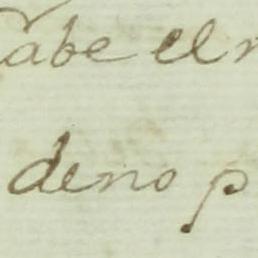 abe el
deno p